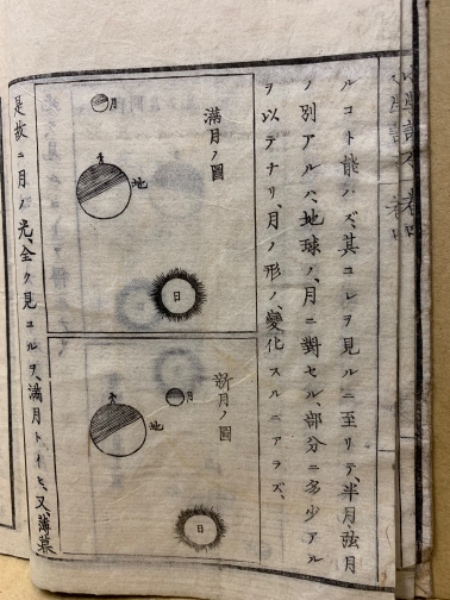 小學讀本 卷四
ルコト能ハズ、其コレヲ見ルニ至リテ、半月、弦月
ノ別アルハ、地球ノ、月ニ對セル、部分ニ多少アル
ヲ以テナリ、月ノ形ノ、變化スルニアラズ、
滿月ノ圖
月
地
日
新月ノ圖
月
地
日
是故ニ月ノ光、全ク見ユルヲ、滿月トイヒ、又、薄暮